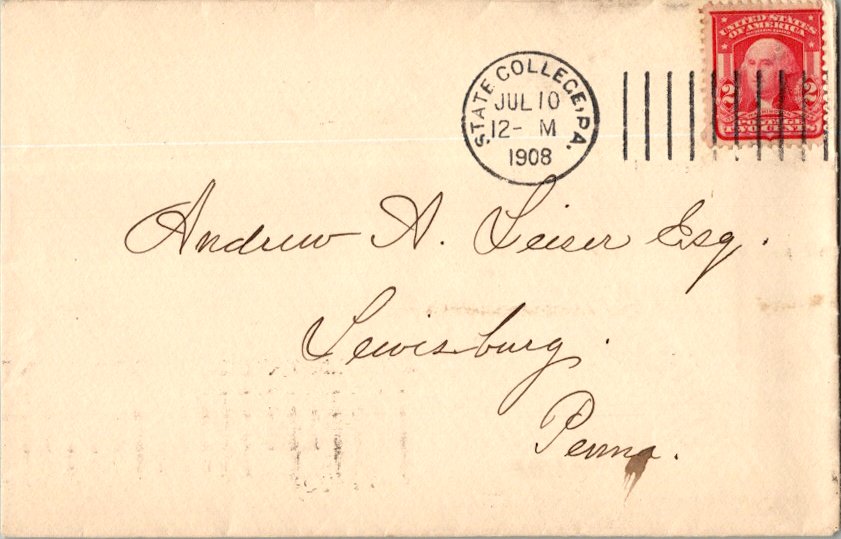 UNITED STATES
OF AMERICA
STATE COLLEGE, PA.
JUL 10
12- M
1908
2 2
POSTAGE
TWO CENTS
Andrew A. Leiser Esq.
Lewisburg.
Penna.